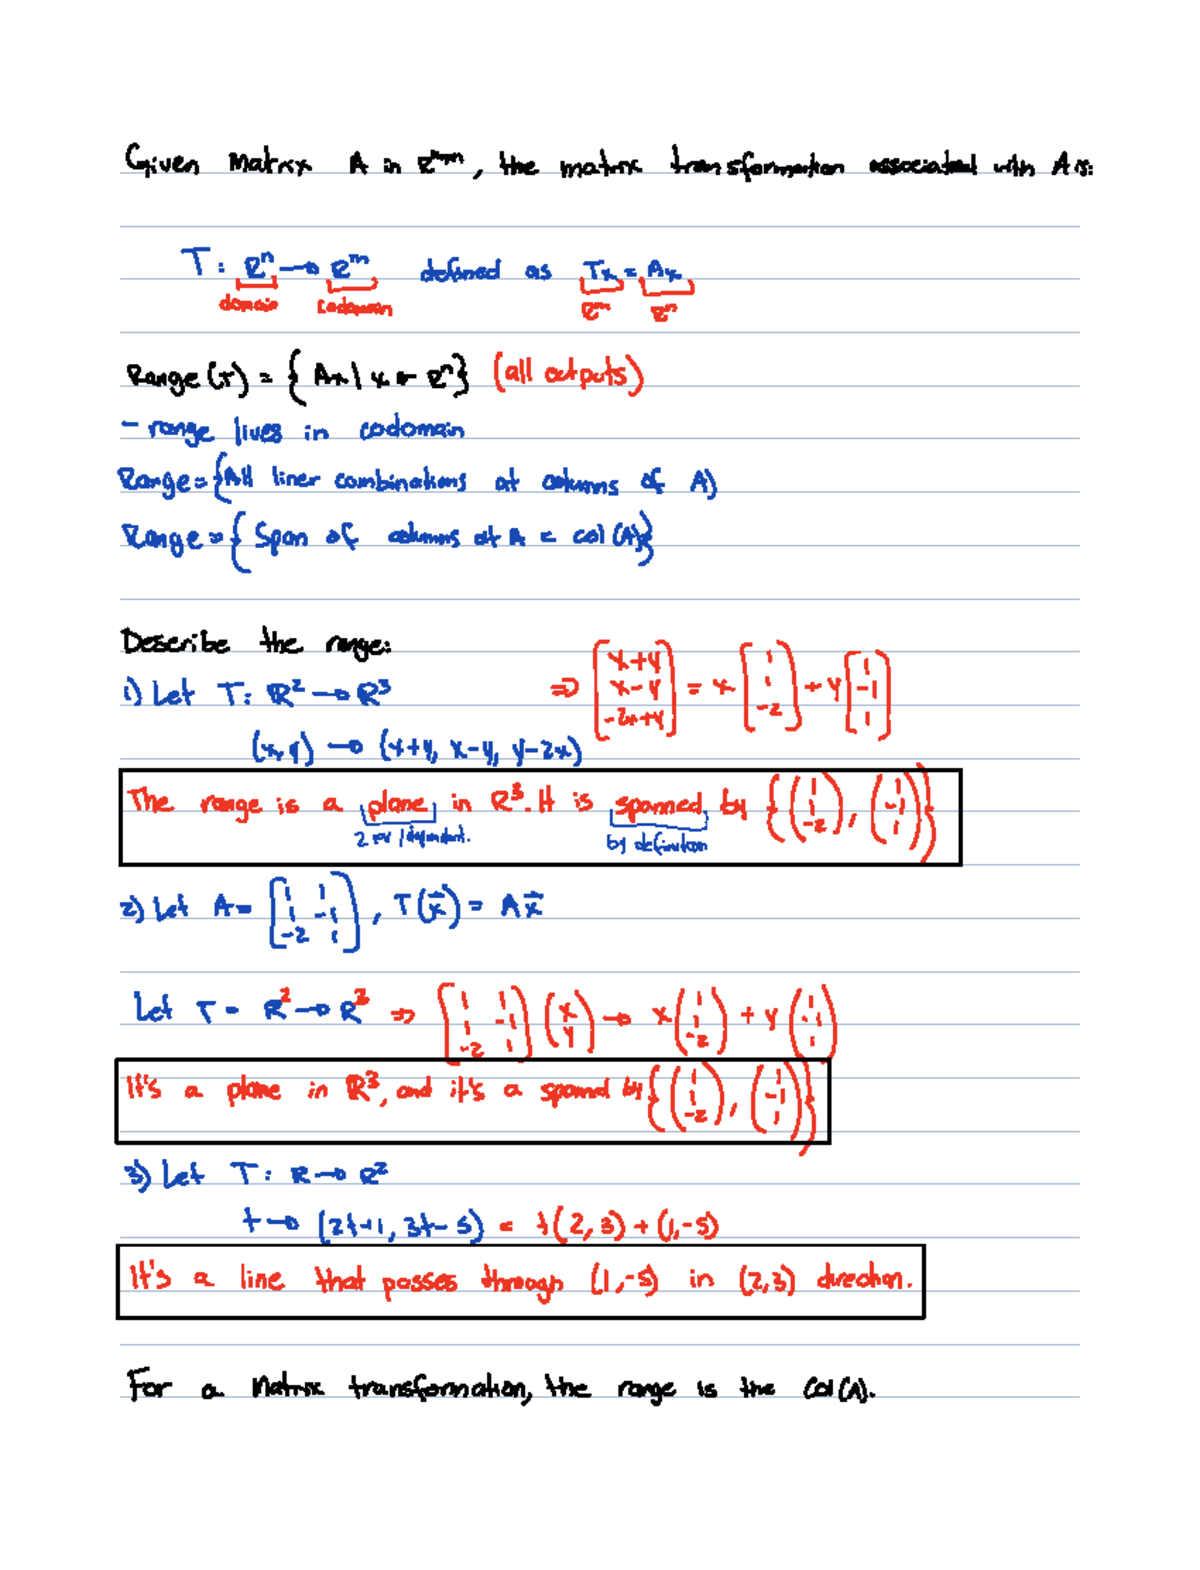 Given Matrix A in R^mxn, the matrix transformation associated with A is:
T: R^n → R^m defined as Tx = Ax
domain codomain R^m R^n
Range(T) = {Ax | x ∈ R^n} (all outputs)
- range lives in codomain
Range = {All liner combinations of columns of A)
Range = {Span of columns of A = col(A)}
Describe the range:
1) Let T: R² → R³ ⇒ [x+y x-y -2x+y] = x [1 1 -2] + y [1 -1 1]
(x,y) → (x+y, x-y, y-2x)
The range is a plane in R³. It is spanned by {(1 1 -2), (1 -1 1)}
2 by definition
2) Let A = [1 1 1 -1 -2 1], T(x⃗) = Ax⃗
Let T = R² → R³ ⇒ [1 1 1 -1 -2 1] (x y) → x (1 1 -2) + y (1 -1 1)
It's a plane in R³, and it's a spanned by {(1 1 -2), (1 -1 1)}
3) Let T: R → R²
t → (2t+1, 3t-5) = t(2,3) + (1,-5)
It's a line that passes through (1,-5) in (2,3) direction.
For a Matrix transformation, the range is the Col(A).